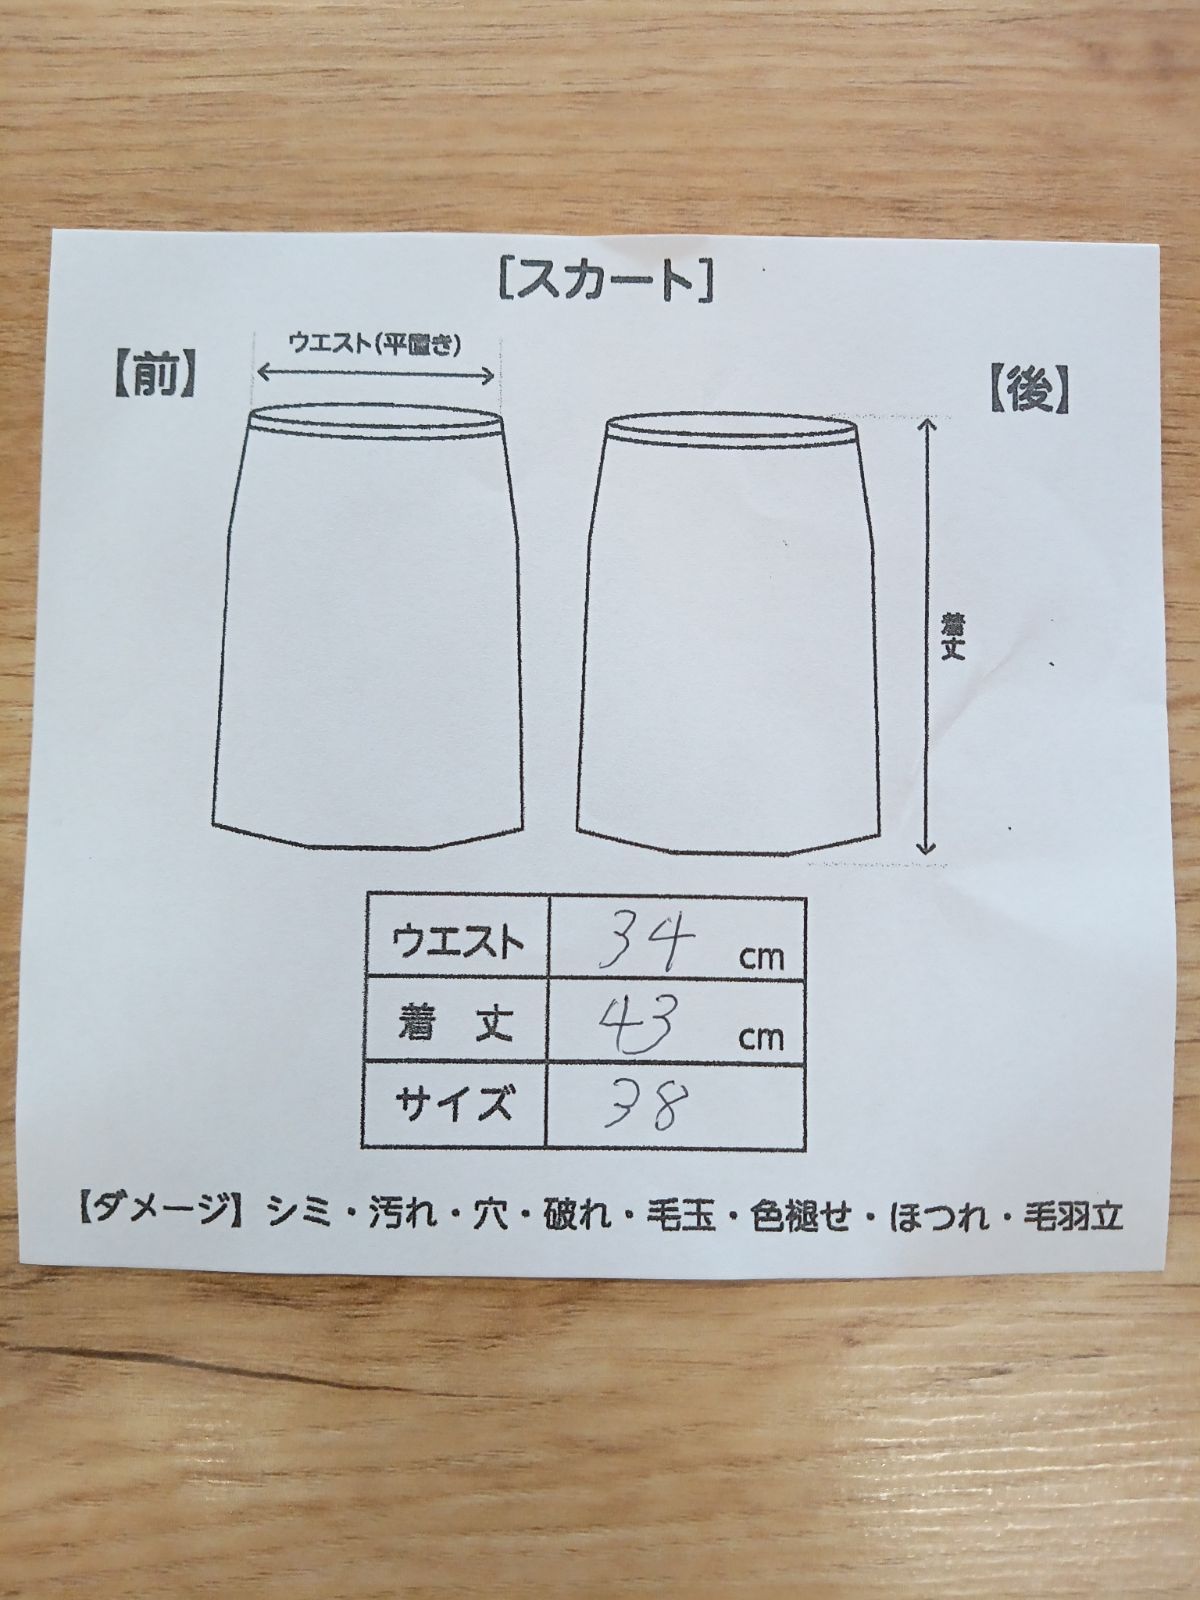 [スカート]
【前】
ウエスト(平置き)
【後】
着丈
ウエスト 34 cm
着 丈 43 cm
サイズ 38
【ダメージ】シミ・汚れ・穴・破れ・毛玉・色褪せ・ほつれ・毛羽立